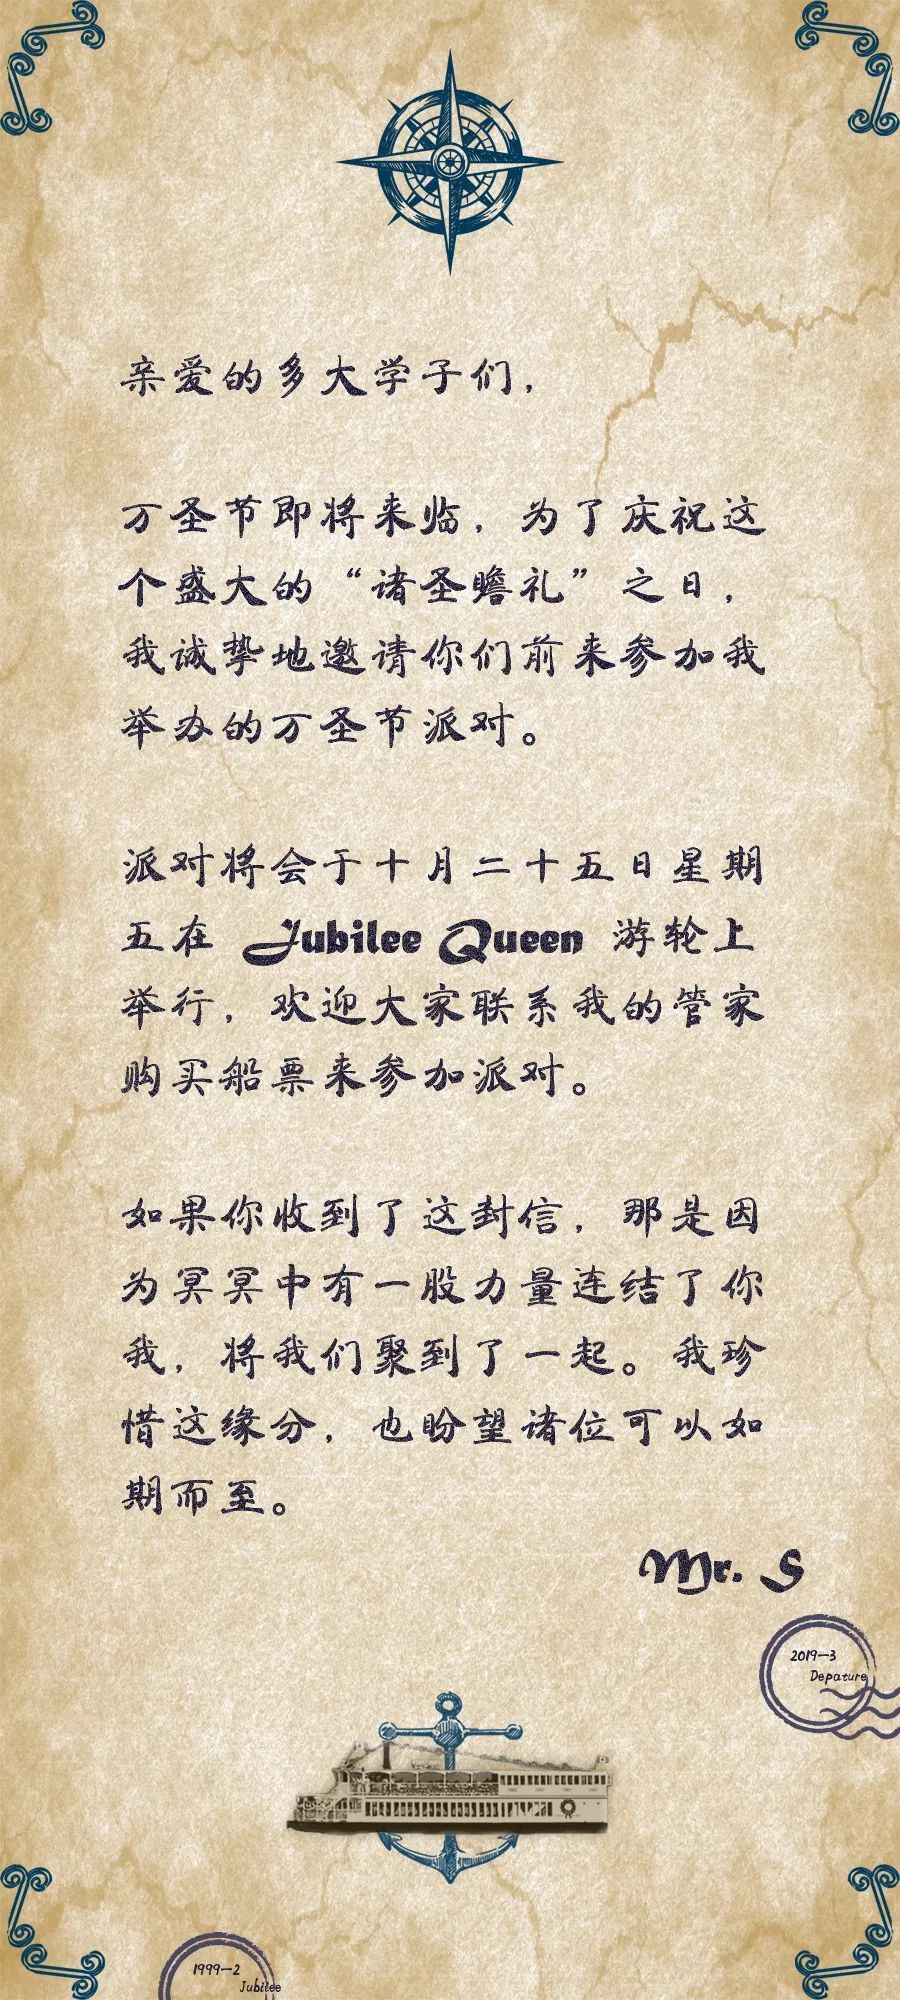 亲爱的多大学子们，
万圣节即将来临，为了庆祝这
个盛大的“诸圣瞻礼”之日，
我诚挚地邀请你们前来参加我
举办的万圣节派对。
派对将会于十月二十五日星期
五在 Jubilee Queen 游轮上
举行，欢迎大家联系我的管家
购买船票来参加派对。
如果你收到了这封信，那是因
为冥冥中有一股力量连结了你
我，将我们聚到了一起。我珍
惜这缘分，也盼望诸位可以如
期而至。
Mr. S
2019-3
Depature
1999-2
Jubilee